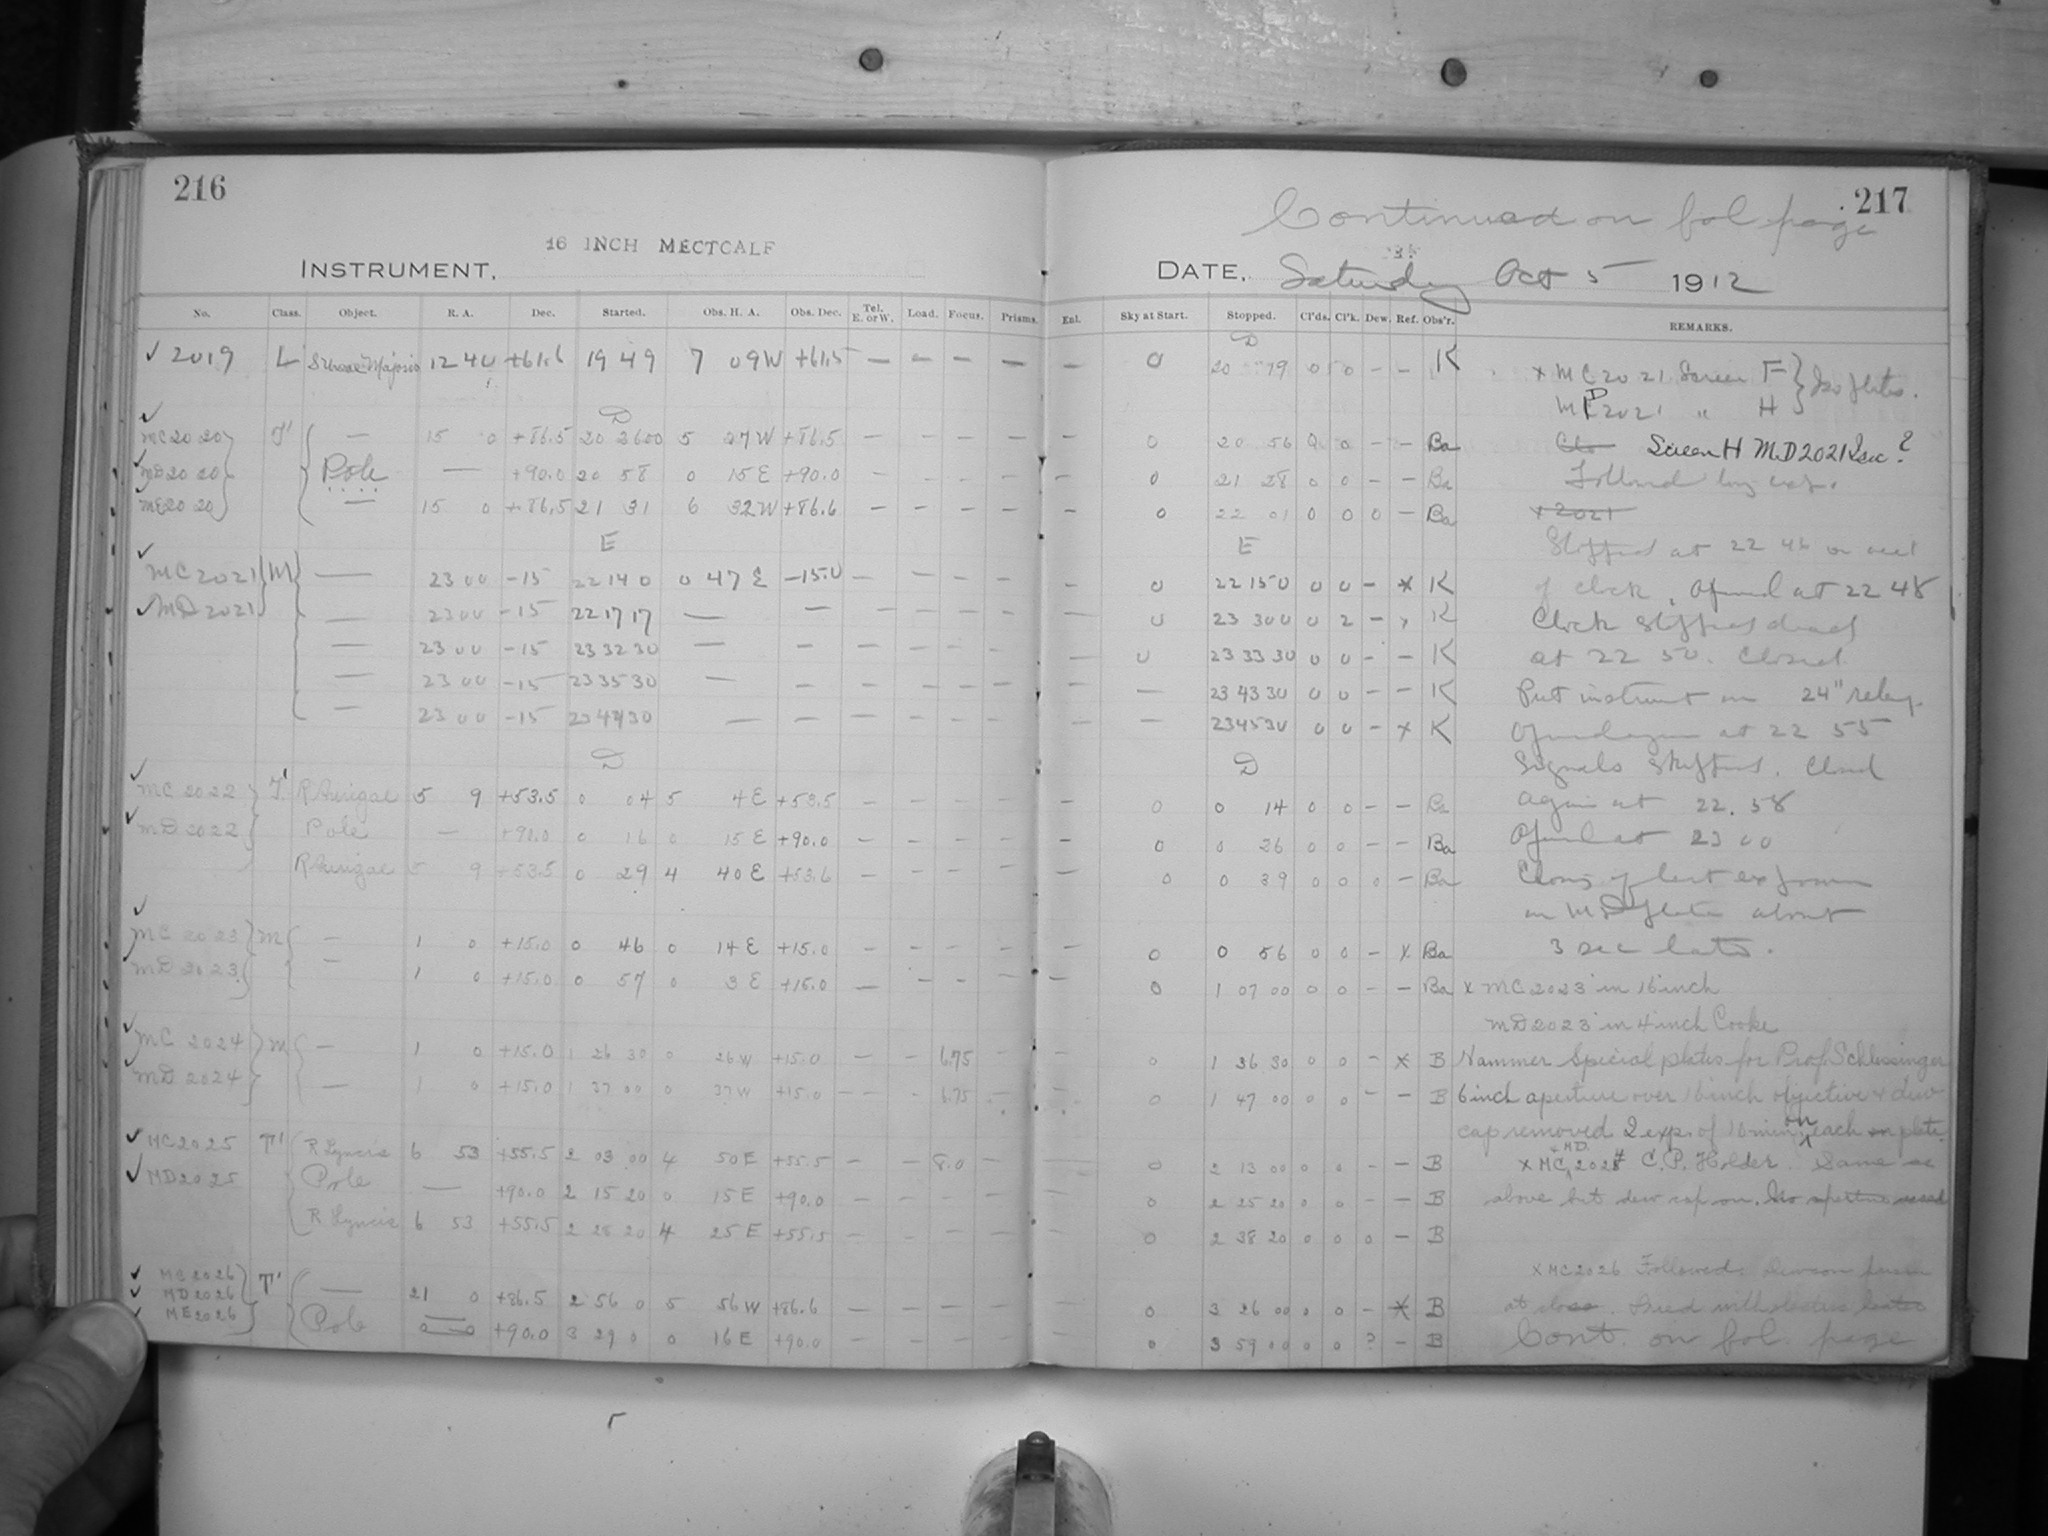 216
16 INCH MECTCALF
INSTRUMENT.
No. Class. Object. R. A. Dec. Started. Obs. H. A. Obs. Dec. Tel. E. or W. Load. Focus. Prisms.
✓ 2019 L S Ursae Majoris 12 40 +61.6 19 49 7 09 W +61.5 — — — —
D
MC 20 20 T' — 15 0 +86.5 20 26 00 5 27 W +86.5 — — — —
MD 20 20 Pole — +90.0 20 58 0 15 E +90.0 — — — —
ME 20 20 — 15 0 +86.5 21 31 6 32 W +86.6 — — — —
E
MC 2021 M — 23 00 -15 22 14 0 0 47 E -15.0 — — — —
MD 2021 — 23 00 -15 22 17 17 — — — — — —
— 23 00 -15 23 32 30 — — — — — —
— 23 00 -15 23 35 30 — — — — — —
— 23 00 -15 23 44 30 — — — — — —
D
MC 2022 T' R Aurigae 5 9 +53.5 0 04 5 4 E +53.5 — — — —
MD 2022 Pole — +90.0 0 16 0 15 E +90.0 — — — —
R Aurigae 5 9 +53.5 0 29 4 40 E +53.6 — — — —
MC 2023 M — 1 0 +15.0 0 46 0 14 E +15.0 — — — —
MD 2023 — 1 0 +15.0 0 57 0 3 E +15.0 — — — —
MC 2024 M — 1 0 +15.0 1 26 30 0 26 W +15.0 — — 6.75
MD 2024 — 1 0 +15.0 1 37 00 0 37 W +15.0 — — 6.75 —
MC 2025 T' R Lyncis 6 53 +55.5 2 03 00 4 50 E +55.5 — — 8.0 —
MD 2025 Pole — +90.0 2 15 20 0 15 E +90.0 — — — —
R Lyncis 6 53 +55.5 2 28 20 4 25 E +55.5 — — — —
MC 2026 T' — 21 0 +86.5 2 56 0 5 56 W +86.6 — — — —
MD 2026
ME 2026 Pole +90.0 3 29 0 0 16 E +90.0 — — — —
217
Continued on fol page
DATE. Saturday Oct 5 1912
Enl. Sky at Start. Stopped. Cl'ds. Cl'k. Dew. Ref. Obs'r. REMARKS.
D
— 0 20 19 0 0 — — K
x MC 2021 Screen F } Iso plates.
MD 2021 " H
— 0 20 56 0 0 — — Ba Screen H MD 2021 2 sec ?
— 0 21 28 0 0 — — Ba Followed by
— 0 22 01 0 0 0 — Ba x 2021
E Stopped at 22 46 on acct
— 0 22 15 0 0 0 — x K of clock. Opened at 22 48
— 0 23 30 0 0 2 — x K Clock stopped dead
— 0 23 33 30 0 0 — — K at 22 50. Closed
— — 23 43 30 0 0 — — K Put instrument on 24" relay
— — 23 45 30 0 0 — x K Opened again at 22 55
D Signals skipped. Closed
— 0 0 14 0 0 — — Ba again at 22.58
— 0 0 26 0 0 — — Ba Opened at 23 00
— 0 0 39 0 0 0 — Ba Closing of last exposure
on MD plate about
— 0 0 56 0 0 — x Ba 3 sec late.
— 0 1 07 00 0 0 — — Ba x MC 2023 in 16 inch
MD 2023 in 4 inch Cooke
0 1 36 30 0 0 — x B Hammer Special plates for Prof. Schlesinger
0 1 47 00 0 0 — — B 6 inch aperture over 16 inch objective & dew
cap removed 2 exps. of 10 min. each on plate.
0 2 13 00 0 0 — — B x MC + MD 2024 C.P. Holder. Same as
0 2 25 20 0 0 — — B above but dew cap on. No aperture used
0 2 38 20 0 0 0 — B
x MC 2026 Followed.
0 3 26 00 0 0 — x B at close.
0 3 59 00 0 0 ? — B Cont. on fol. page